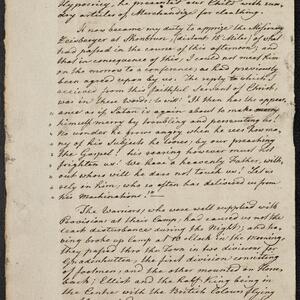 Hypocrisy, he presented our Chiefs with sun-
dry articles of Merchandize for cloathing.
It now became my duty to apprize the Missionary
Zeisberger at Shonbrun, (distant 15 Miles) of what
had passed in the course of this afternoon; and
that in consequence of this, I could not meet him
on the morrow to a conference, as had previously
been agreed upon by us. The reply to which, I
received from this faithful Servant of Christ,
was in these Words; viz: "It then has the appear-
ance as if Satan is again about to make merry
himself merry by troubling and persecuting us!
No wonder he grows angry when he sees how ma-
ny of his Subjects he loses, by our preaching
the Gospel! His roaring however must not
frighten us! We have a heavenly Father, with-
out whose will he dare not touch us! Let us
rely in him, who so often has delivered us from
his Machinations."
The Warriors, who were well supplied with
Provision at their Camp, had caused us not the
least disturbance during the Night; and ha-
ving broke up Camp at 9 OClock in the Morning,
they passed thro the Town in two divisions for
Gnadenhutten, the first division consisting
of footmen, and the other mounted on Horse
back; Elliot and the Half King being in
in the Centre with the British Colours flying